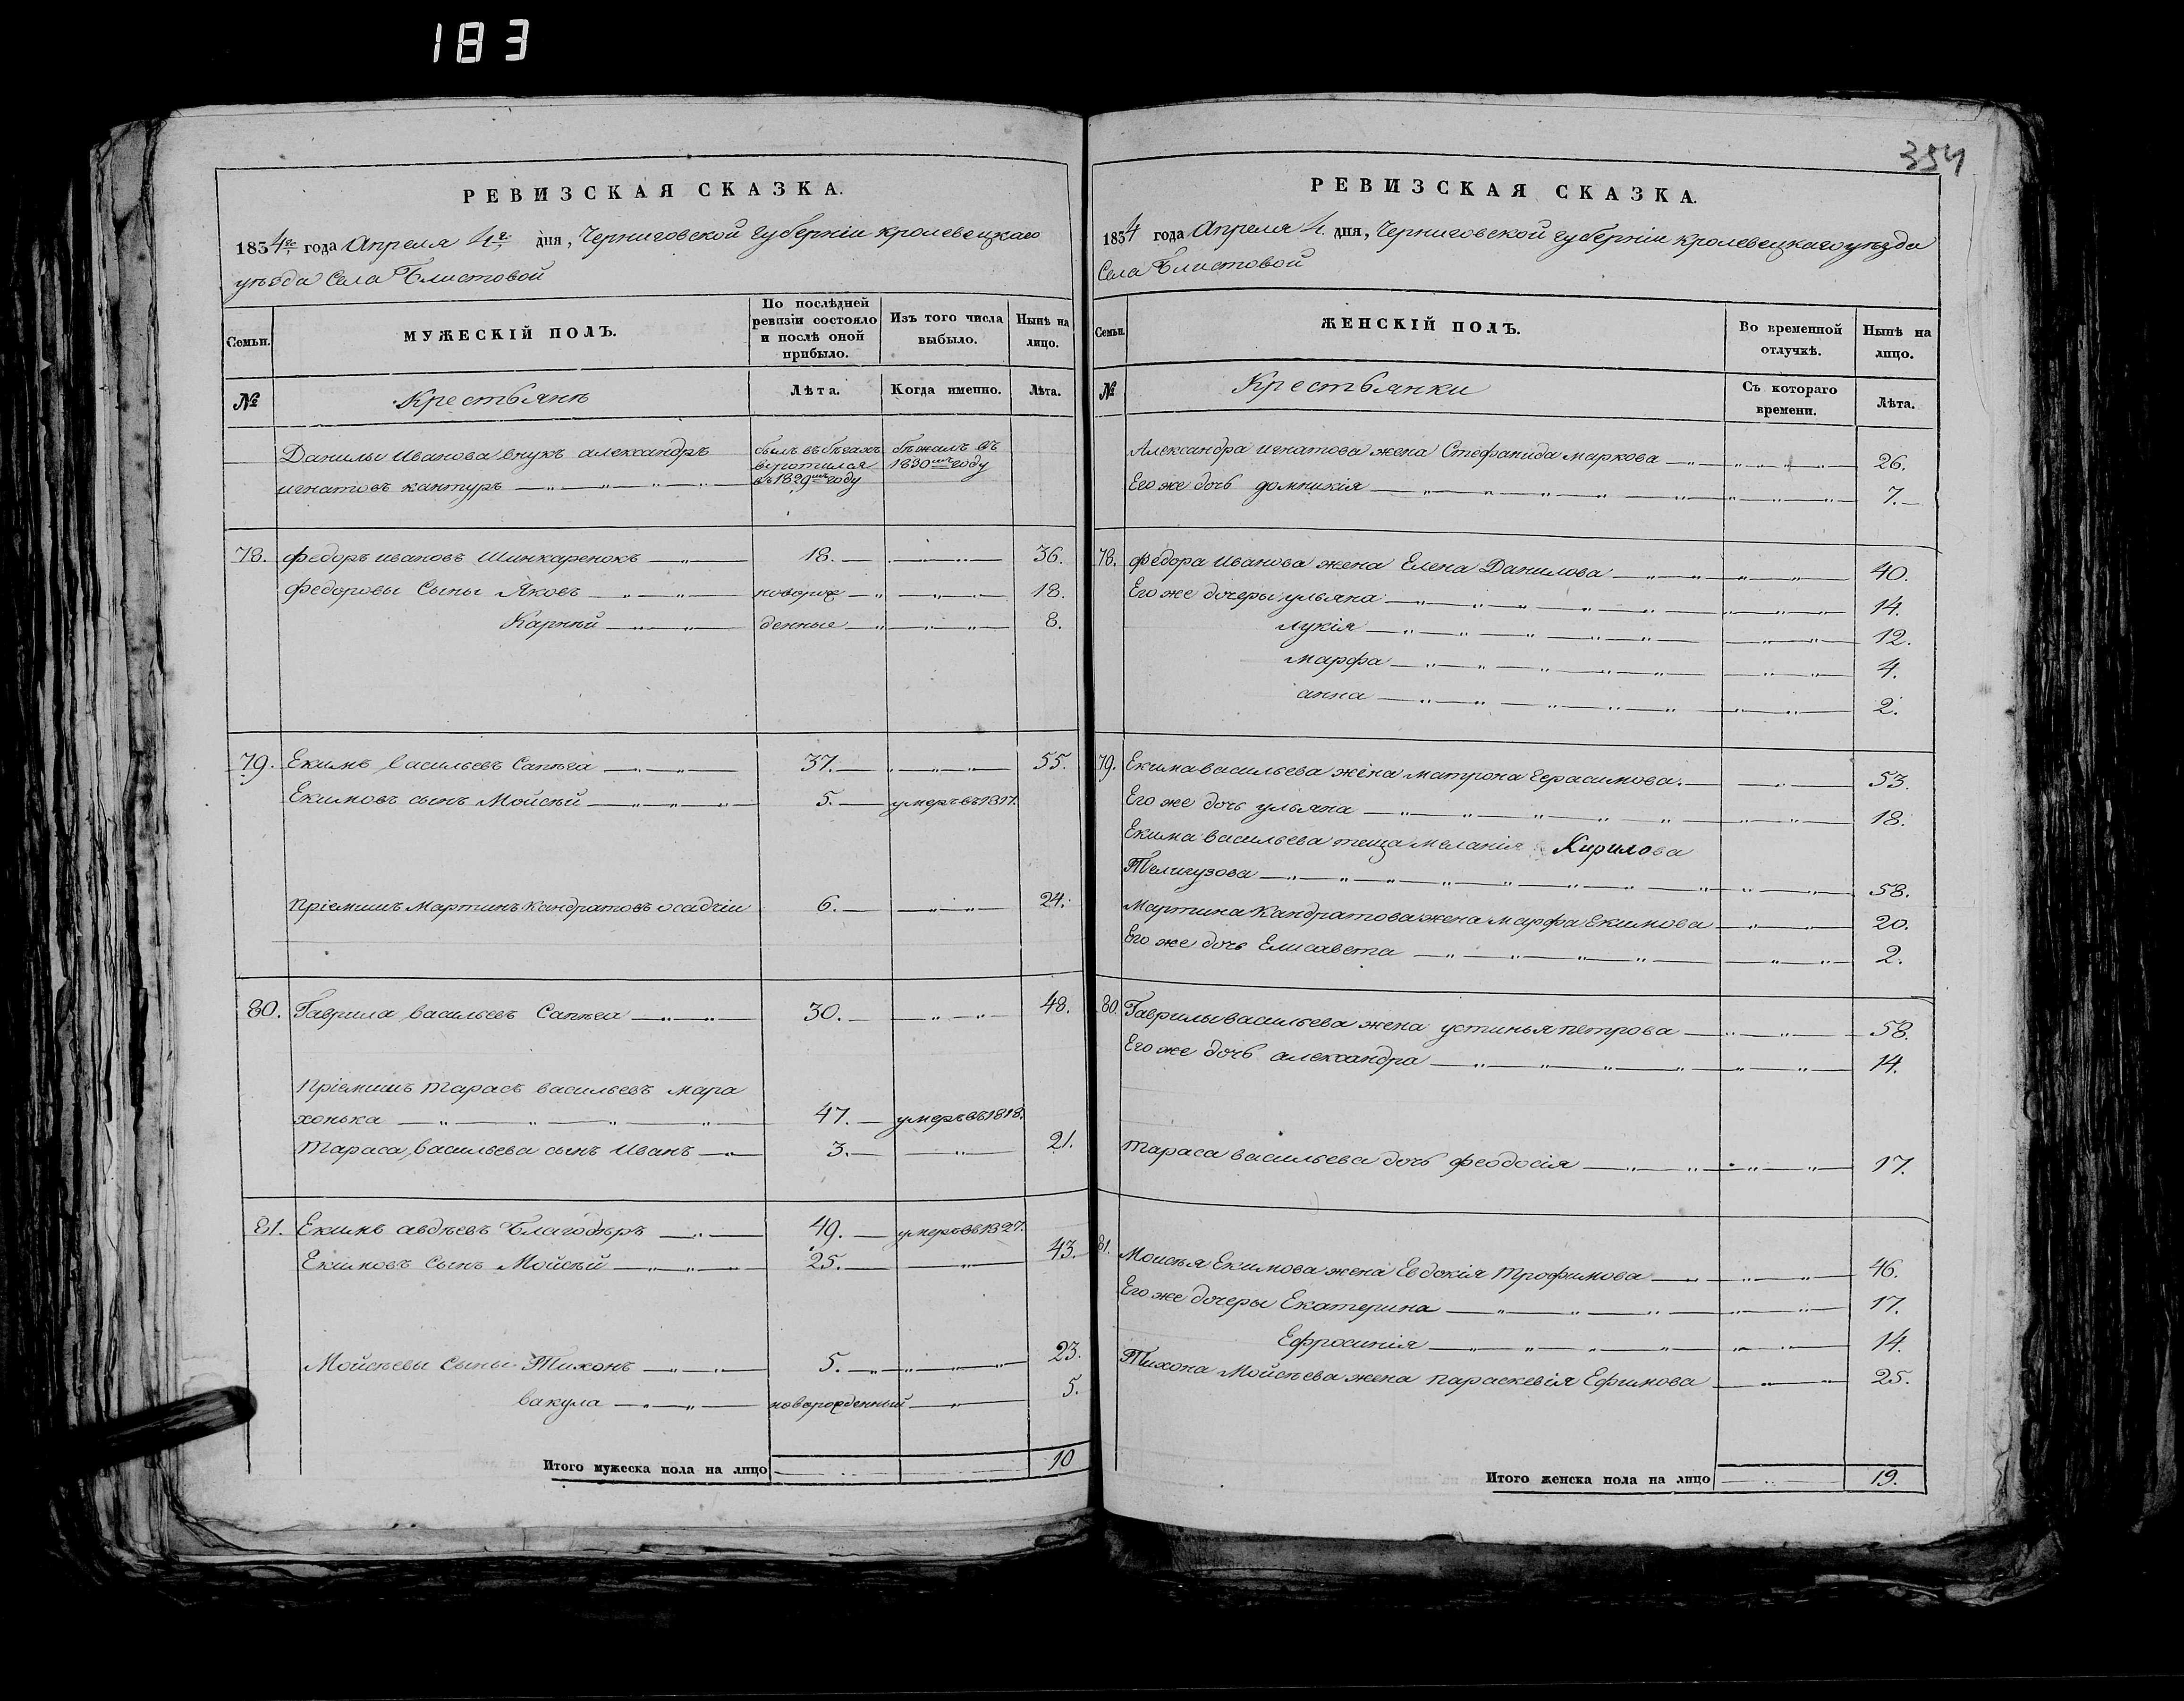 183
354
РЕВИЗСКАЯ СКАЗКА.
1834го года Апреля 4го дня, Черниговской губерніи Кролевецкаго
уѣзда Села Блистовой
Семьи.
МУЖЕСКІЙ ПОЛЪ.
По послѣдней ревизіи состояло и послѣ оной прибыло.
Изъ того числа выбыло.
Нынѣ на лицо.
№
Крестьянъ
Лѣта.
Когда именно.
Лѣта.
Данилы Иванова внукъ александръ
игнатовъ кантуръ
былъ въ бѣгахъ воротился въ 1829мъ году
бѣжалъ въ 1830мъ году
78. Федоръ ивановъ Шинкаренокъ 18. 36.
Федоровы Сыны Яковъ новорож 18.
Карпъй денные 8.
79. Екимъ Васильевъ Сапѣга 37. 55.
Екимовъ сынъ Мойсѣй 5. умеръ въ 1817.
Пріемишъ Мартинъ Кандратовъ осадчіи 6. 24.
80. Гаврила васильевъ Сапѣга 30. 48.
Пріемишъ Тарасъ васильевъ мара
хонька 47. умеръ въ 1818.
Тараса Васильева сынъ Иванъ 3. 21.
81. Екимъ авдѣевъ Благодѣръ 49. умеръ въ 1827.
Екимовъ Сынъ Мойсѣй 25. 43.
Мойсѣевы Сыны Тихонъ 5. 23.
вакула новорожденный 5.
Итого мужеска пола на лицо 10
РЕВИЗСКАЯ СКАЗКА.
1834 года Апреля 4. дня, Черниговской губерніи Кролевецкаго уѣзда
Села Блистовой
Семьи.
ЖЕНСКІЙ ПОЛЪ.
Во временной отлучкѣ.
Нынѣ на лицо.
№
Крестьянки
Съ котораго времени.
Лѣта.
Александра игнатова жена Стефанида маркова 26.
Его же дочь домникія 7.
78. Федора Иванова жена Елена Данилова 40.
Его же дочеры ульяна 14.
лукія 12.
марфа 4.
анна 2.
79. Екима васильева жена матрона Герасимова. 53.
Его же дочь ульяна 18.
Екима васильева теща меланія Кирилова
Телигузова 58.
Мартина Кандратова жена марфа Екимова 20.
Его же дочь Елисавета 2.
80. Гаврилы васильева жена устинья петрова 58.
Его же дочь александра 14.
Тараса васильева дочь феодосія 17.
81. Мойсѣя Екимова жена Евдокія трофимова 46.
Его же дочеры Екатерина 17.
Ефросинія 14.
Тихона Мойсѣева жена параскевія Ефимова 25.
Итого женска пола на лицо 19.